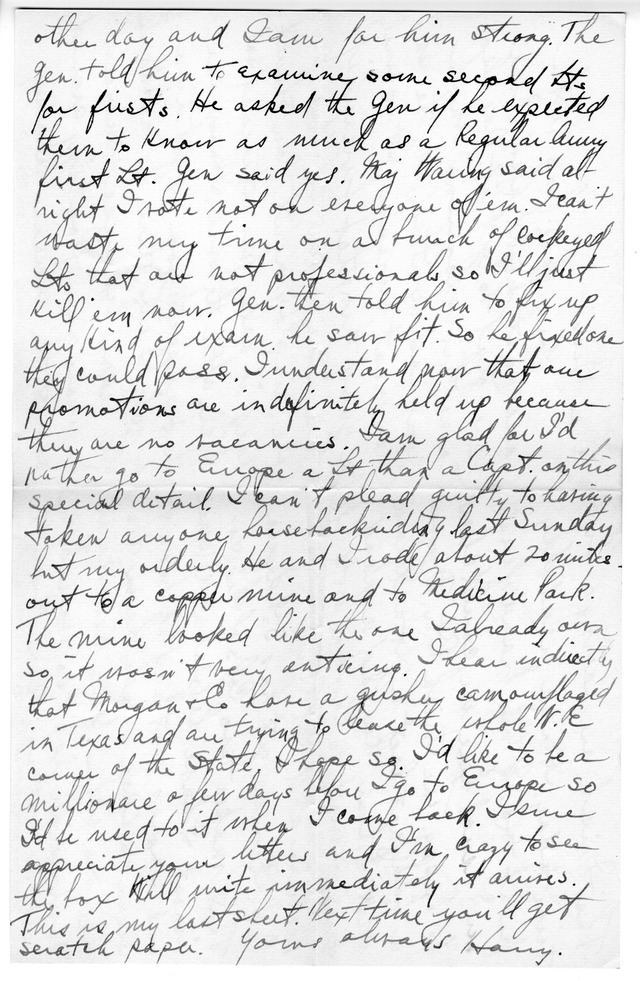 other day and I am for him strong. The
Gen. told him to examine some second Lts
for firsts. He asked the Gen if he expected
them to know as much as a Regular Army
first Lt. Gen said yes. Maj said al-
right I vote not on everyone of 'em. I can't
waste my time on a bunch of cockeyed
Lts that are not professionals so I'll just
kill 'em now. Gen. then told him to fix up
any kind of exam he saw fit. So he fixed one
they could pass. I understand now that our
promotions are indefinitely held up because
they are no vacancies. I am glad for I'd
rather go to Europe a Lt than a Capt. on this
special detail. I can't plead guilty to having
taken anyone horsebackriding last Sunday
but my orderly. He and I rode about 20 miles
out to a copper mine and to Medicine Park.
The mine looked like the one I already own
so it wasn't very enticing. I hear indirectly
that Morgan & Co have a gusher camouflaged
in Texas and are trying to lease the whole N.E
corner of the State. I hope so. I'd like to be a
millionare a few days before I go to Europe so
I'd be used to it when I come back. I sure
appreciate your letters and I'm crazy to see
the box Will write immediately it arrives.
This is my last sheet. Next time you'll get
scratch paper. Yours always Harry.